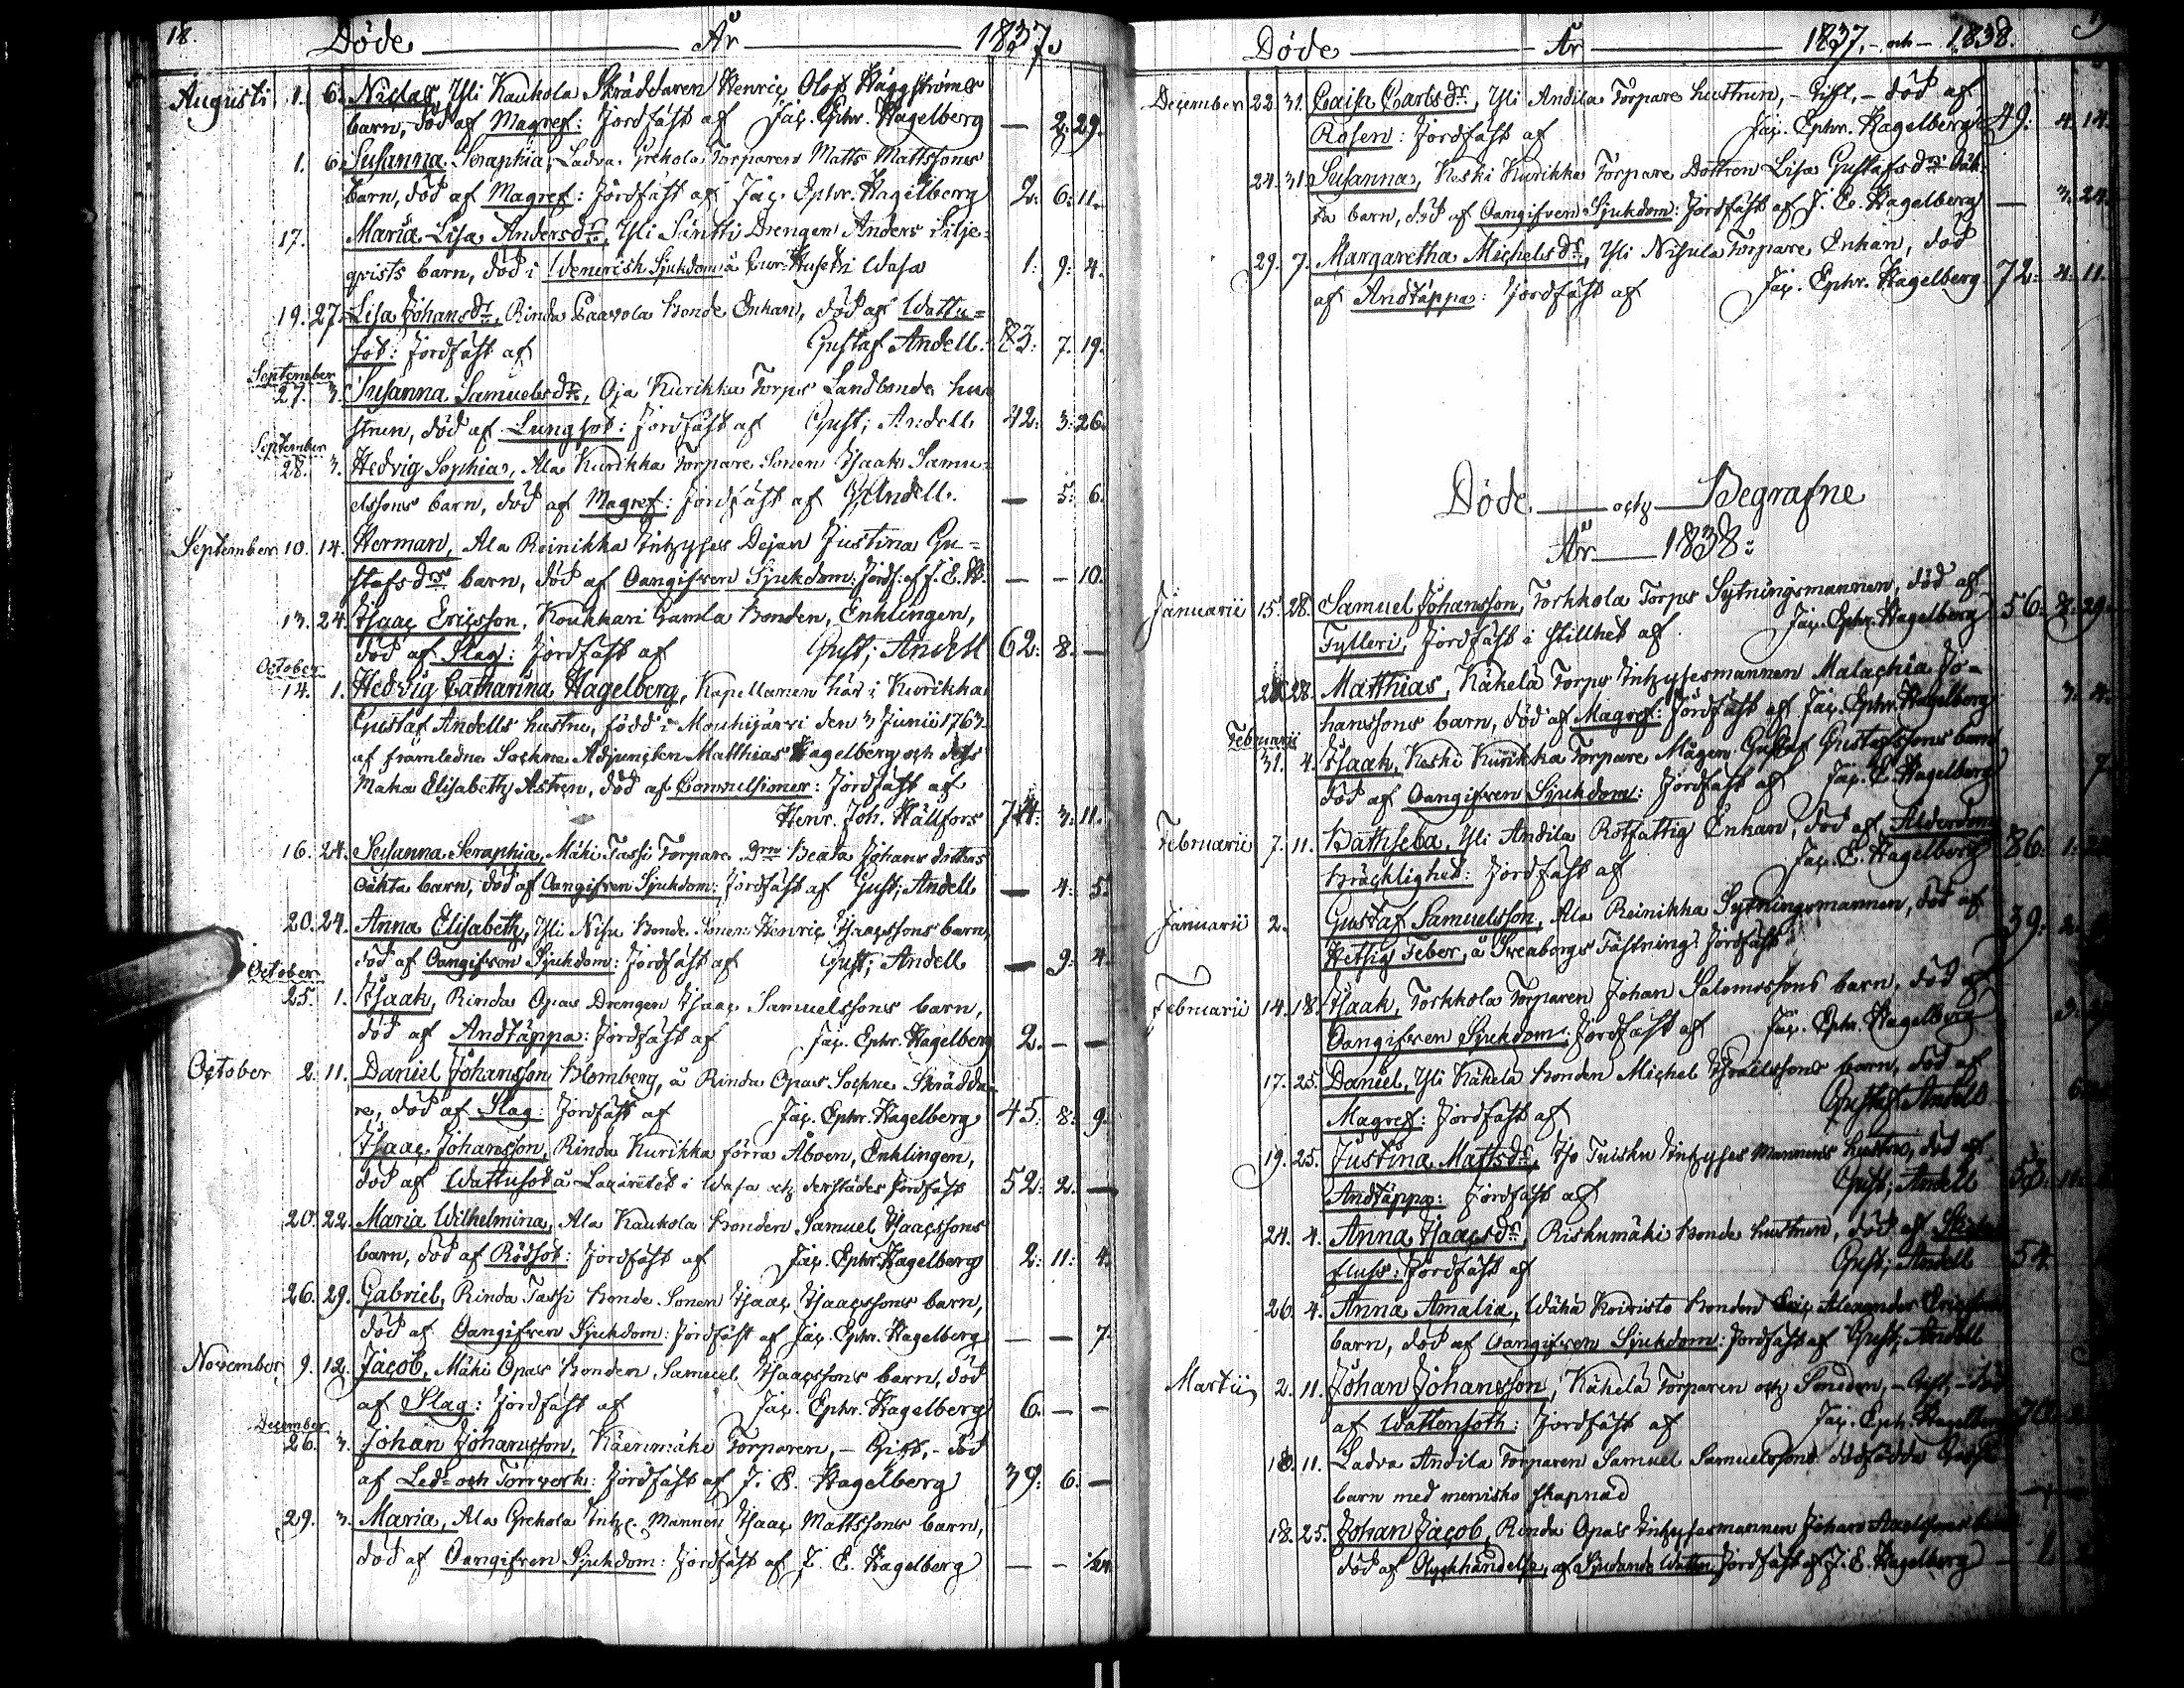 18.
Döde År 1837.
Augusti 1. 6. Niclas, Yli Kaukola Skräddaren Henric Olof Häggströms
barn, död af Magref: Jordfäst af Jac. Ephr. Hagelberg — 2. 29.
1. 6. Susanna Seraphia, Ladva Grekola Torparen Matts Mattssons
barn, död af Magref: Jordfäst af Jac. Ephr. Hagelberg 2. 6. 11.
17. Maria Lisa Andersdr, Yli Säntti Drengen Anders Silje-
qvists barn, död i Venerisk Sjukdom å Cur: Huset i Wasa 1: 9: 4.
19. 27. Lisa Johansdr, Rinda Paavola Bonde Enkan, död af Wattu-
sot: Jordfäst af Gustaf Andell. 73: 7. 19.
September
27. 3. Susanna Samuelsdr, Oja Kurikka Torps Landbonde hu-
strun, död af Lungsot: Jordfäst af Gust; Andell 42: 3: 26.
September
28. 3. Hedvig Sophia, Ala Kurikka Torpare Sonen Isaak Samu-
elssons barn, död af Magref: Jordfäst af G. Andell. — 5: 6.
September 10. 14. Herman, Ala Reinikka Inhyses Dejan Justina Gu-
stafsdrs barn, död af Oangifven Sjukdom: Jordf: af J. E. H. — — 10.
13. 24. Isaac Ericsson, Koukkari Gamla Bonden, Enklingen,
död af Slag: Jordfäst af Gust; Andell 62: 8. —
October
14. 1. Hedvig Catharina Hagelberg, Kapellanen här i Kurikka
Gustaf Andells hustru, född i Mouhijärvi den 3 Junii 1763.
af framledne Sockne Adjuncten Matthias Hagelberg och dess
Maka Elisabeth Astren, död af Convulsioner: Jordfäst af
Henr. Joh. Hällfors 74: 3: 11.
16. 24. Susanna Seraphia, Mäki Tassi Torpare Drn Beata Johans dotters
oäkta barn, död af Oangifven Sjukdom: Jordfäst af Gust; Andell — 4: 5.
20. 24. Anna Elisabeth, Yli Nisu Bonde Sonen Henric Isaacssons barn,
död af Oangifven Sjukdom: Jordfäst af Gust; Andell — 9: 4.
October
25. 1. Isaak, Rinda Opas Drengen Isaac Samuelssons barn,
död af Andtäppa: Jordfäst af Jac. Ephr. Hagelberg 2. — —
October 2. 11. Daniel Johansson Blomberg, å Rinda Opas Sockne Skrädda-
re, död af Slag: Jordfäst af Jac. Ephr. Hagelberg 45: 8: 9.
Isaac Johansson, Rinda Kurikka förra Åboen, Enklingen,
död af Wattusot å Lazarettet i Wasa och derstädes Jordfäst 52: 2. —
20. 22. Maria Wilhelmina, Ala Kaukola Bonden Samuel Isaacssons
barn, död af Rödsot: Jordfäst af Jac. Ephr. Hagelberg 2: 11: 4.
26. 29. Gabriel, Rinda Tassi Bonde Sonen Isaac Isaacssons barn,
död af Oangifven Sjukdom: Jordfäst af Jac. Ephr. Hagelberg — — 7.
November 9. 12. Jacob, Mäki Opas Bonden Samuel Isaacssons barn, död
af Slag: Jordfäst af Jac. Ephr. Hagelberg 6. — —
December
26. 3. Johan Johansson, Käenmäki Torparen, — Gift, — död
af Led- och Torrverk: Jordfäst af J. E. Hagelberg 39: 6. —
29. 3. Maria, Ala Grekola Inh. Mannen Isaac Mattssons barn,
död af Oangifven Sjukdom: Jordfäst af J. E. Hagelberg — —
Döde År 1837. och 1838.
December 22. 31. Caisa Carlsdr, Yli Andila Torpare hustrun, — Gift, — död af
Rosen: Jordfäst af Jac. Ephr. Hagelberg 49: 4. 14.
24. 31. Susanna, Keski Kurikka Torpare Dottren Lisa Gustafsdrs Oäk-
ta barn, död af Oangifven Sjukdom: Jordfäst af J. E. Hagelberg — 3. 24.
29. 7. Margaretha Michelsdr, Yli Nisula Torpare Enkan, död
af Andtäppa: Jordfäst af Jac. Ephr. Hagelberg 72: 4. 11.
Döde och Begrafne
År 1838:
Januarii 15. 28. Samuel Johansson, Torkkola Torps Sytningsmannen, död af
Fylleri, Jordfäst i stillhet af Jac. Ephr. Hagelberg 56. 8. 29.
28. Matthias, Käkelä Torps Inhysesmannen Malachia Jo-
hanssons barn, död af Magref: Jordfäst af Jac. Ephr. Hagelberg 3. 4.
Februarii
31. 4. Isaak, Keski Kurikka Torpare Mågen Gustaf Gustafssons barn
död af Oangifven Sjukdom: Jordfäst af Jac. E. Hagelberg 7
Februarii 7. 11. Bathseba, Yli Andila Rotfattig Enkan, död af Ålderdoms
bräcklighet: Jordfäst af Jac. E. Hagelberg 86. 1.
Januarii 2. Gustaf Samuelsson, Ala Reinikka Sytningsmannen, död af
Hetsig Feber, å Sveaborgs Fästning Jordfäst 39: 2.
Februarii 14. 18. Isaak, Torkkola Torparen Johan Salomossons barn, död af
Oangifven Sjukdom: Jordfäst af Jac. Ephr. Hagelberg
17. 25. Daniel, Yli Käkelä Bonden Michel Israelssons barn, död af
Magref: Jordfäst af Gustaf Andell 6
19. 25. Justina Mattsdr, Iso Tuisku Inhyses Mannens hustru, död af
Andtäppa: Jordfäst af Gust; Andell
24. 4. Anna Isaacsdr, Riskumäki Bonde hustrun, död af
fluss: Jordfäst af Gust; Andell 54.
26. 4. Anna Amalia, Wähä Koivisto Bonden Eric Alexander
barn, död af Oangifven Sjukdom: Jordfäst af Gust; Andell
Martii 2. 11. Johan Johansson, Käkelä Torparen och Smeden, — Gift, — död
af Wattensoth: Jordfäst af Jac. Eph. Hagelberg 70
18. 11. Ladva Andila Torparen Samuel Samuelssons dödfödda
barn med menisko skapnad
18. 25. Johan Jacob, Rinda Opas Inhysesmannen Johan
död af Olyckhändelse, af Sjudande Watten, Jordfäst af J. E. Hagelberg